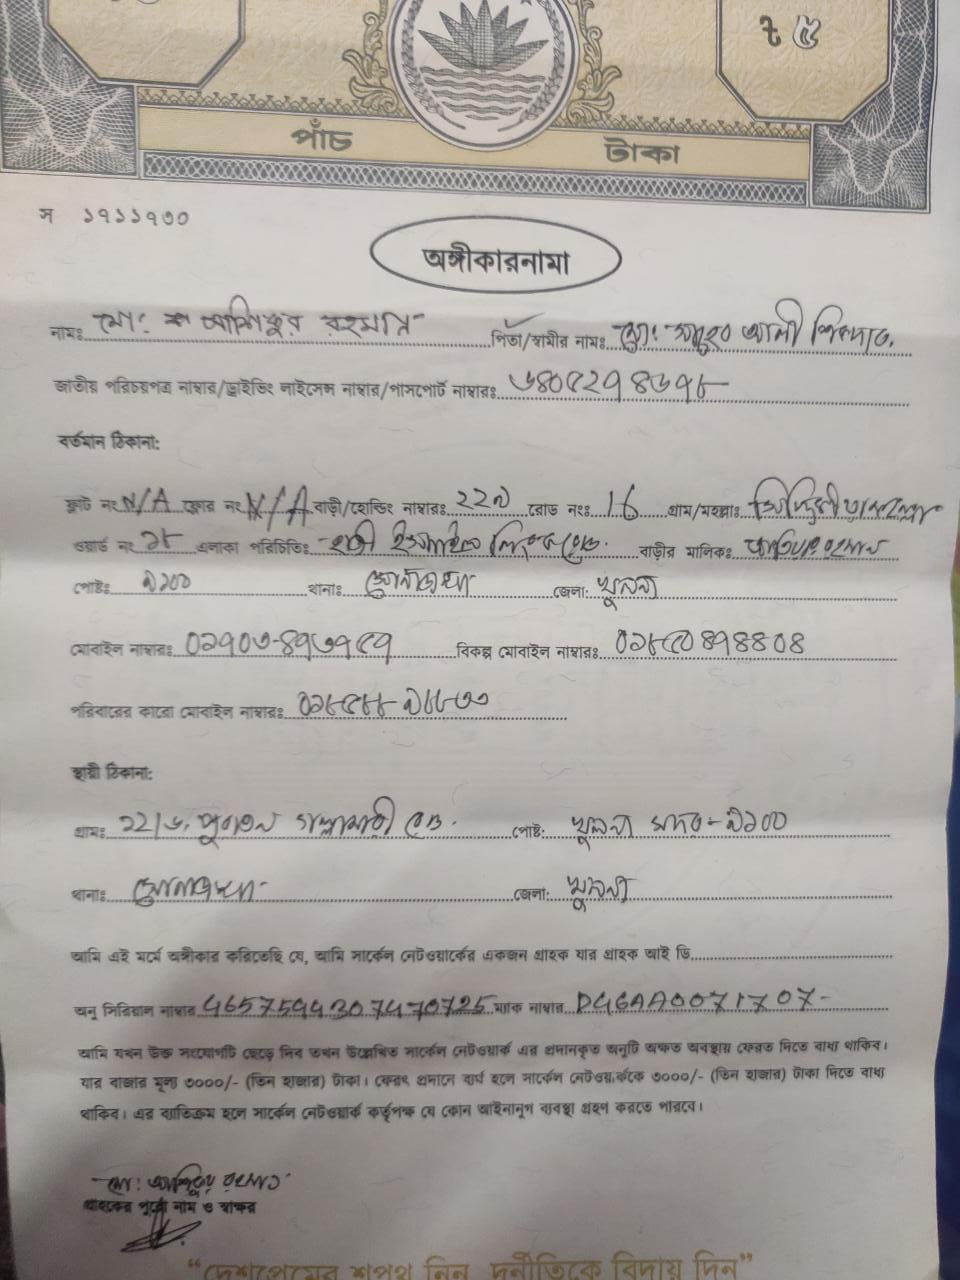 ৳ ৫
পাঁচ টাকা
স ১৭১১৭৩০
অঙ্গীকারনামা
নামঃ মোঃ আশিকুর রহমান পিতা/স্বামীর নামঃ মোঃ আলী
জাতীয় পরিচয়পত্র নাম্বার/ড্রাইভিং লাইসেন্স নাম্বার/পাসপোর্ট নাম্বারঃ ৬৪০৫২৭৪৬৭৮
বর্তমান ঠিকানা:
ফ্লাট নং N/A ফ্লোর নং N/A বাড়ী/হোল্ডিং নাম্বারঃ ২২৯ রোড নংঃ 16 গ্রাম/মহল্লাঃ
ওয়ার্ড নং ১৮ এলাকা পরিচিতিঃ হাজী ইসমাইল লিংক রোড. বাড়ীর মালিকঃ
পোষ্টঃ ৯১০০ থানাঃ সোনাডাঙ্গা জেলা: খুলনা
মোবাইল নাম্বারঃ ০১৭০৩-৪৭৬৭৫৭ বিকল্প মোবাইল নাম্বারঃ ০১৮৫০৪৭৪৪০৪
পরিবারের কারো মোবাইল নাম্বারঃ
স্থায়ী ঠিকানা:
গ্রামঃ ২২/৬, পুরাতন গল্লামারী রোড. পোষ্ট: খুলনা সদর-৯১০০
থানাঃ সোনাডাঙ্গা জেলা: খুলনা
আমি এই মর্মে অঙ্গীকার করিতেছি যে, আমি সার্কেল নেটওয়ার্কের একজন গ্রাহক যার গ্রাহক আই ডি
অনু সিরিয়াল নাম্বার 46575944307470725 ম্যাক নাম্বার D46AA0071707
আমি যখন উক্ত সংযোগটি ছেড়ে দিব তখন উল্লেখিত সার্কেল নেটওয়ার্ক এর প্রদানকৃত অনুটি অক্ষত অবস্থায় ফেরত দিতে বাধ্য থাকিব।
যার বাজার মূল্য ৩০০০/- (তিন হাজার) টাকা। ফেরৎ প্রদানে ব্যর্থ হলে সার্কেল নেটওয়ার্ককে ৩০০০/- (তিন হাজার) টাকা দিতে বাধ্য
থাকিব। এর ব্যতিক্রম হলে সার্কেল নেটওয়ার্ক কর্তৃপক্ষ যে কোন আইনানুগ ব্যবস্থা গ্রহণ করতে পারবে।
মোঃ আশিকুর রহমান
গ্রাহকের পুরো নাম ও স্বাক্ষর
“দেশপ্রেমের শপথ নিন, দুর্নীতিকে বিদায় দিন”